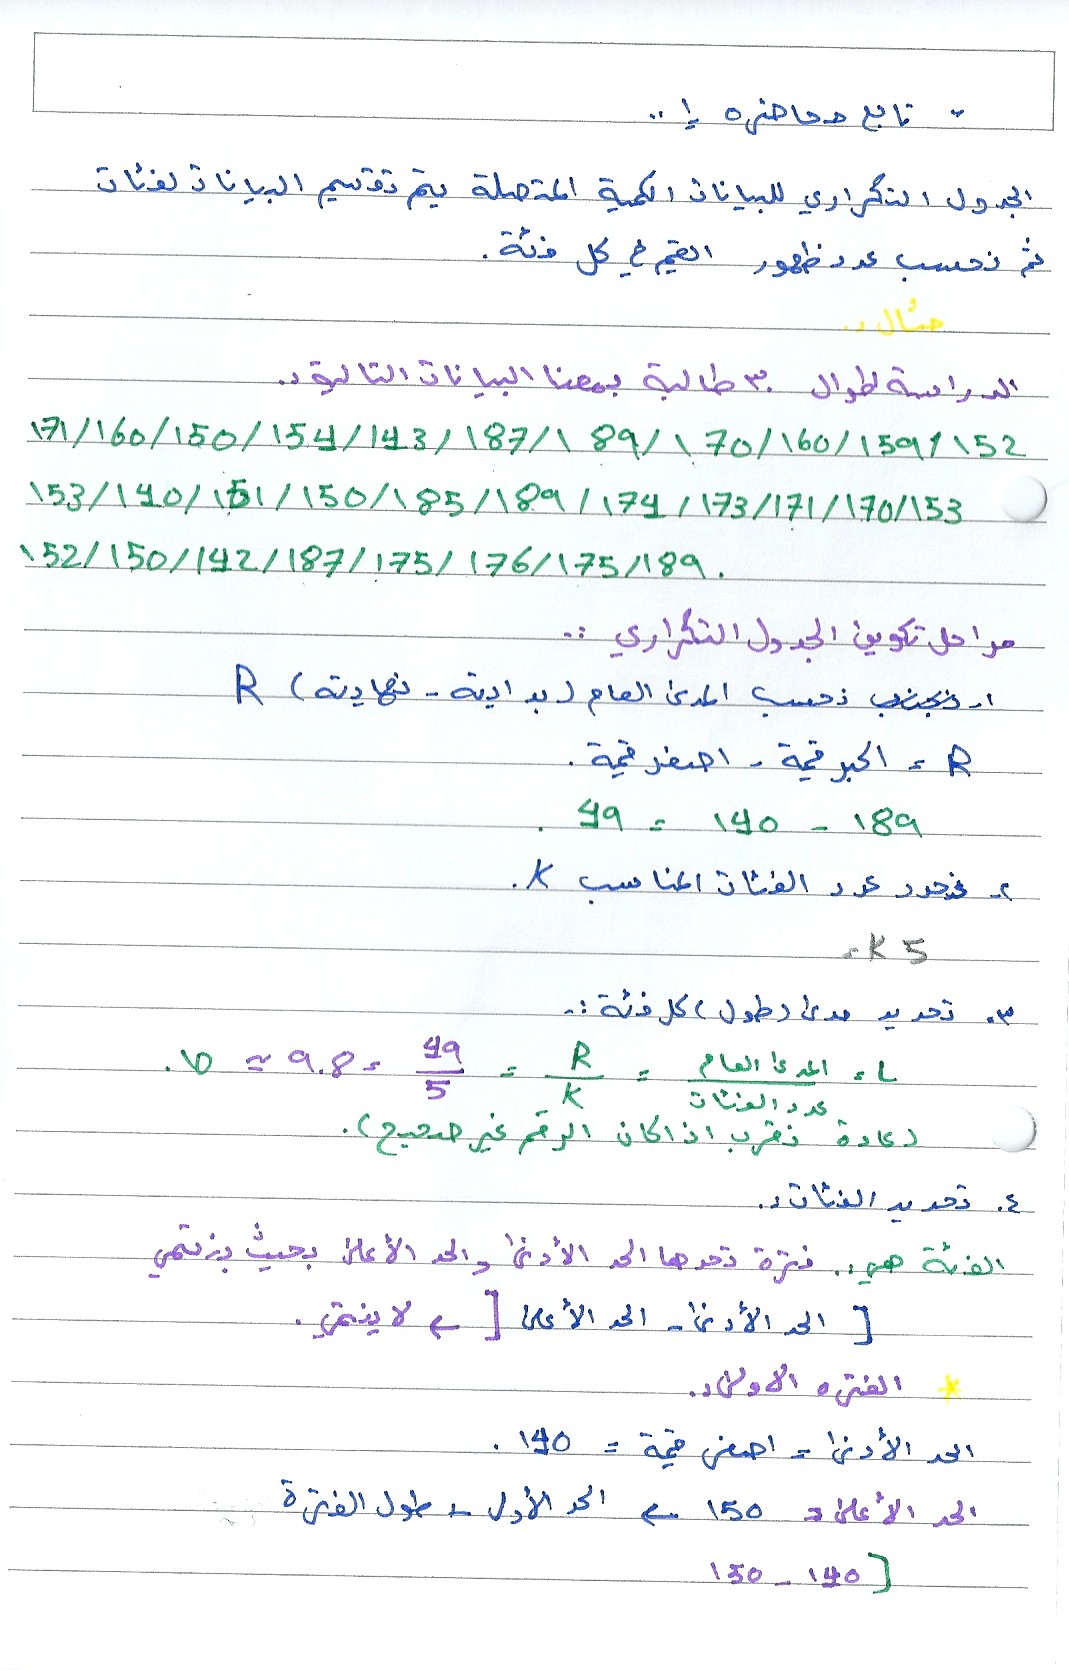 - تابع محاضره 1 ..
الجدول التكراري للبيانات الكمية المتصلة يتم تقسيم البيانات لفئات
ثم نحسب عدد ظهور القيم في كل فئة .
مثال ..
الدراسة لطوال ٣٠ طالبة جمعنا البيانات التالية ..
171/160/150/154/143/187/189/170/160/159/152
153/140/151/150/185/189/174/173/171/170/153
152/150/142/187/175/176/175/189.
مراحل تكوين الجدول التكراري :.
١- نحسب المدى العام (بدايته - نهايته) R
R = اكبر قيمة - اصغر قيمة .
189 - 140 = 49 .
٢- نحدد عدد الفئات المناسب K .
K 5 =
٣. تحديد مدى (طول) كل فئة :.
L = المدى العام / عدد الفئات = R / K = 49 / 5 = 9.8 ≈ 10 .
(عادة نقرب اذا كان الرقم غير صحيح) .
٤. تحديد الفئات ..
الفئة هي .. فترة تحدها الحد الأدنى والحد الأعلى بحيث ينتمي
[ الحد الأدنى - الحد الأعلى [ ← لا ينتمي .
* الفتره الاولى ..
الحد الأدنى = اصغر قيمة = 140 .
الحد الأعلى = 150 ← الحد الأول + طول الفترة
[ 140 - 150